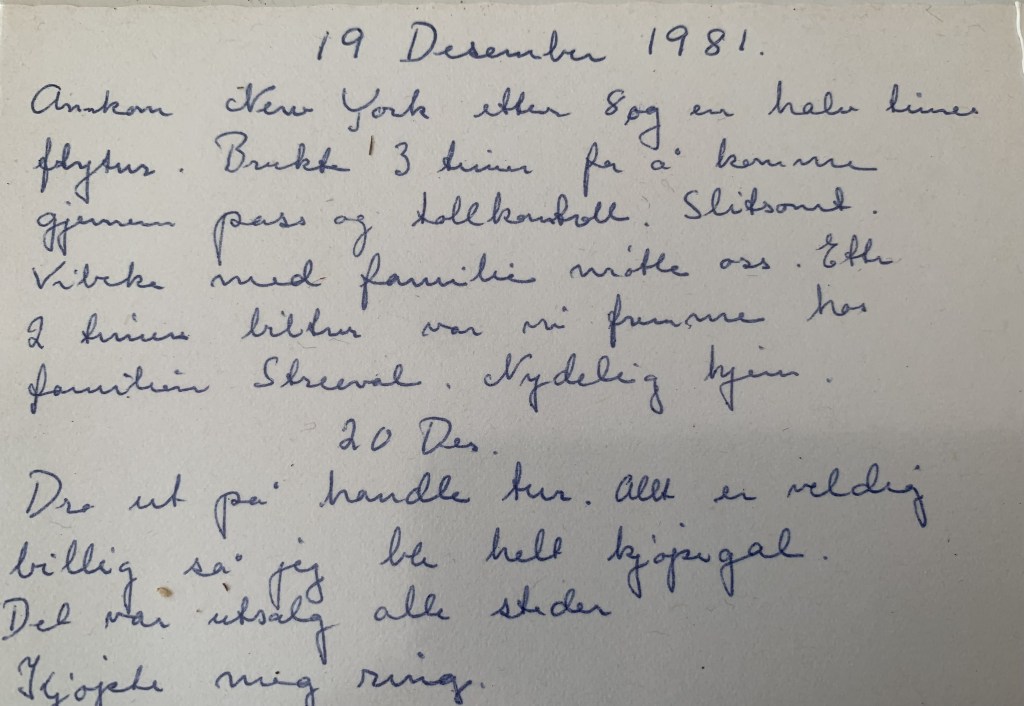 19 Desember 1981.
Ankom New York etter 8 og en halv times
flytur. Brukte 3 timer for å komme
gjennem pass og tollkontroll. Slitsomt.
Vibeke med familie møtte oss. Etter
2 timers biltur var vi framme hos
familien Streeval. Nydelig hjem.
20 Des.
Dro ut på handle tur. Allt er veldig
billig så jeg ble helt kjøpegal.
Det var utsalg alle steder
Kjøpte meg ring.